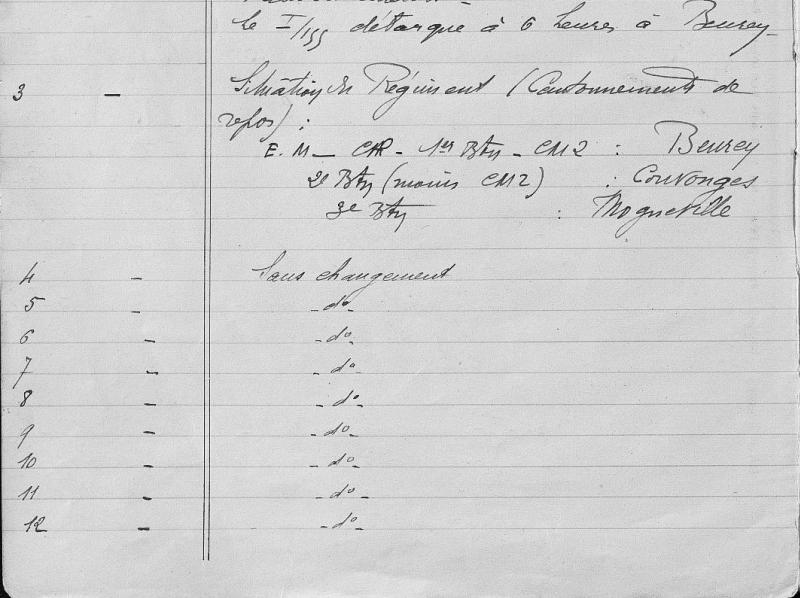 le I/155 débarque à 6 heures à Beurey-
3 — Situation du Régiment (Cantonnements de
repos) :
E. M - CHR - 1er Btn - CM2 : Beurey
2e Btn (moins CM2) : Couvonges
3e Btn : Mogneville
4 - Sans changement
5 - - do -
6 - - do -
7 - - do -
8 - - do -
9 - - do -
10 - - do -
11 - - do -
12 - - do -